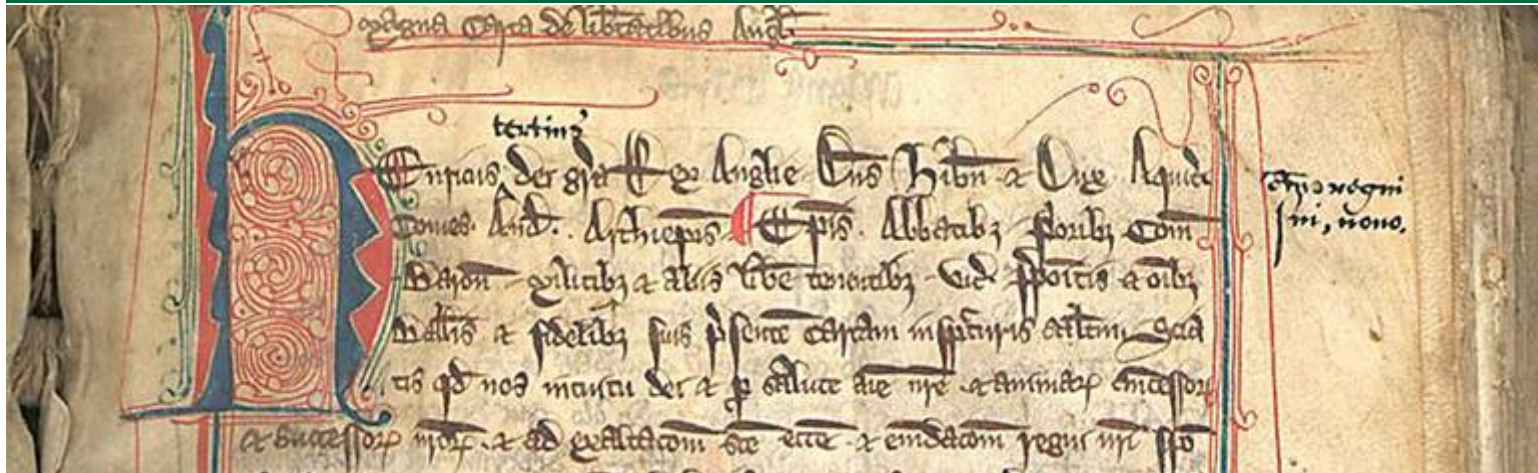 Magna Carta de lib̄tatibus Angl̄
tertius
Henricus dei gr̄a Rex Anglie Dn̄s Hib̄n & Dux Aquit̄
Comes And̄. Archiep̄is Ep̄is Abbatibȝ Prioribȝ Com̄
Baron̄ militibȝ & aliis lib̄e tenentibȝ Vic̄ p̄poitis & oībȝ
Ballīs & fidelibȝ suis p̄sente Cartam insp̄cturis salt̄m Scia
tis qd̄ nos intuitu dei & ꝑ salute aīe nr̄e & animaꝝ antecessoꝝ
& successoꝝ nr̄oꝝ & ad exaltac̄om sc̄e ecc̄e & emdac̄om regni nr̄i spo
regni
sui, nono.